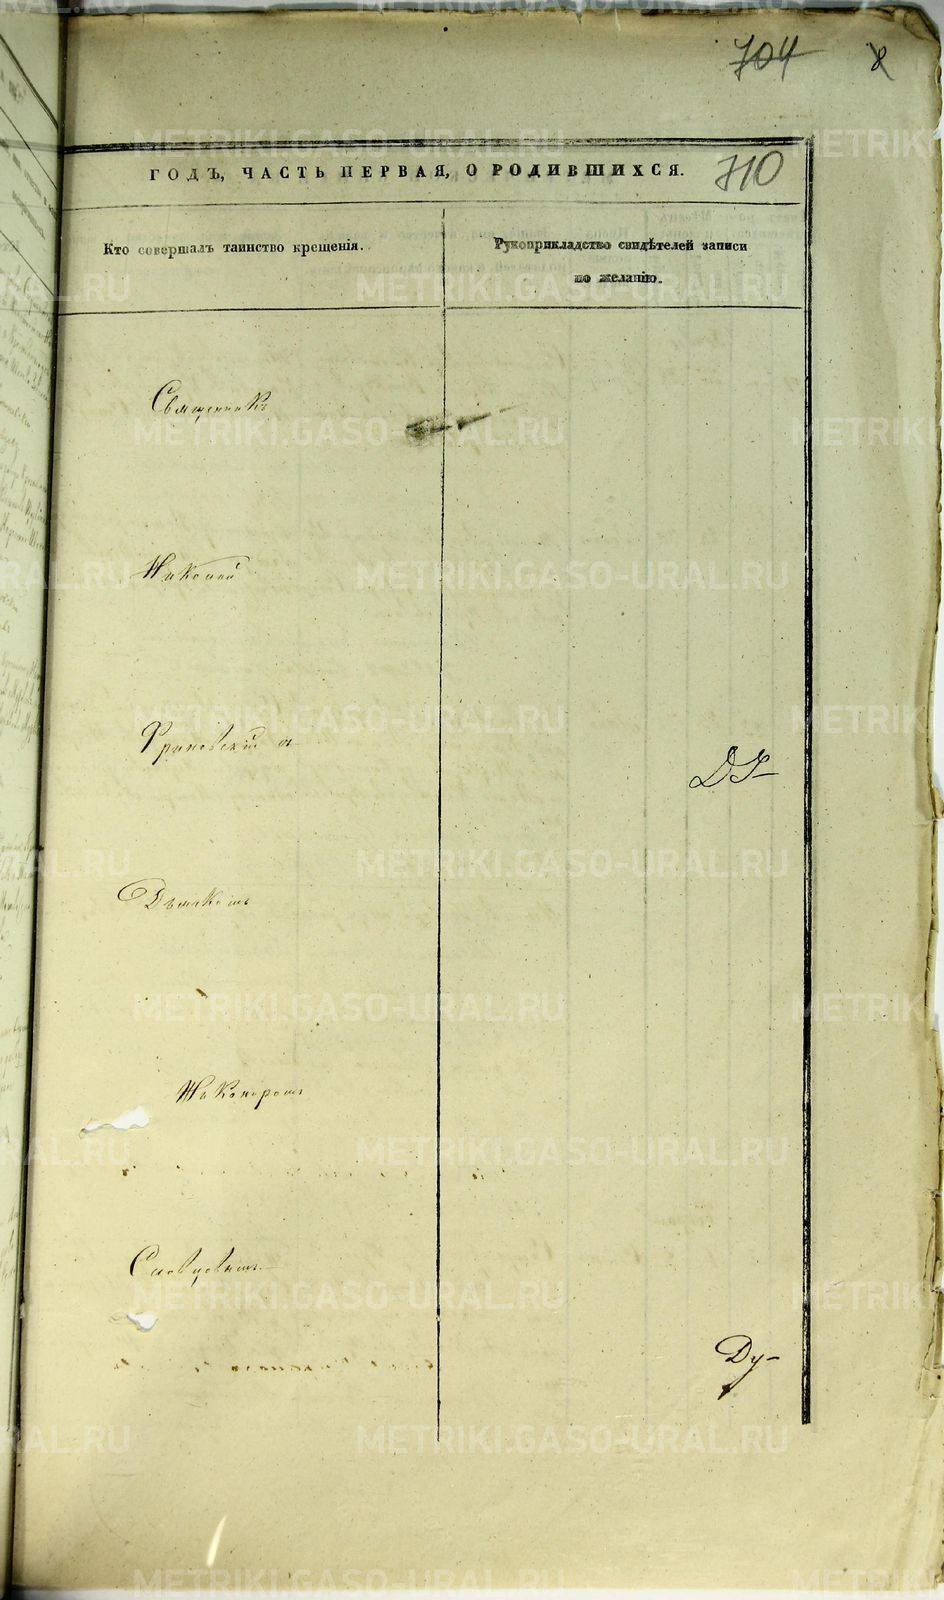 704 8
ГОДЪ, ЧАСТЬ ПЕРВАЯ, О РОДИВШИХСЯ. 710
Кто совершалъ таинство крещенія.
Рукоприкладство свидѣтелей записи
по желанію.
Священникъ
Николай
съ
Дьякономъ
Никоноромъ
Словцовымъ.
Ду-
METRIKI.GASO-URAL.RU